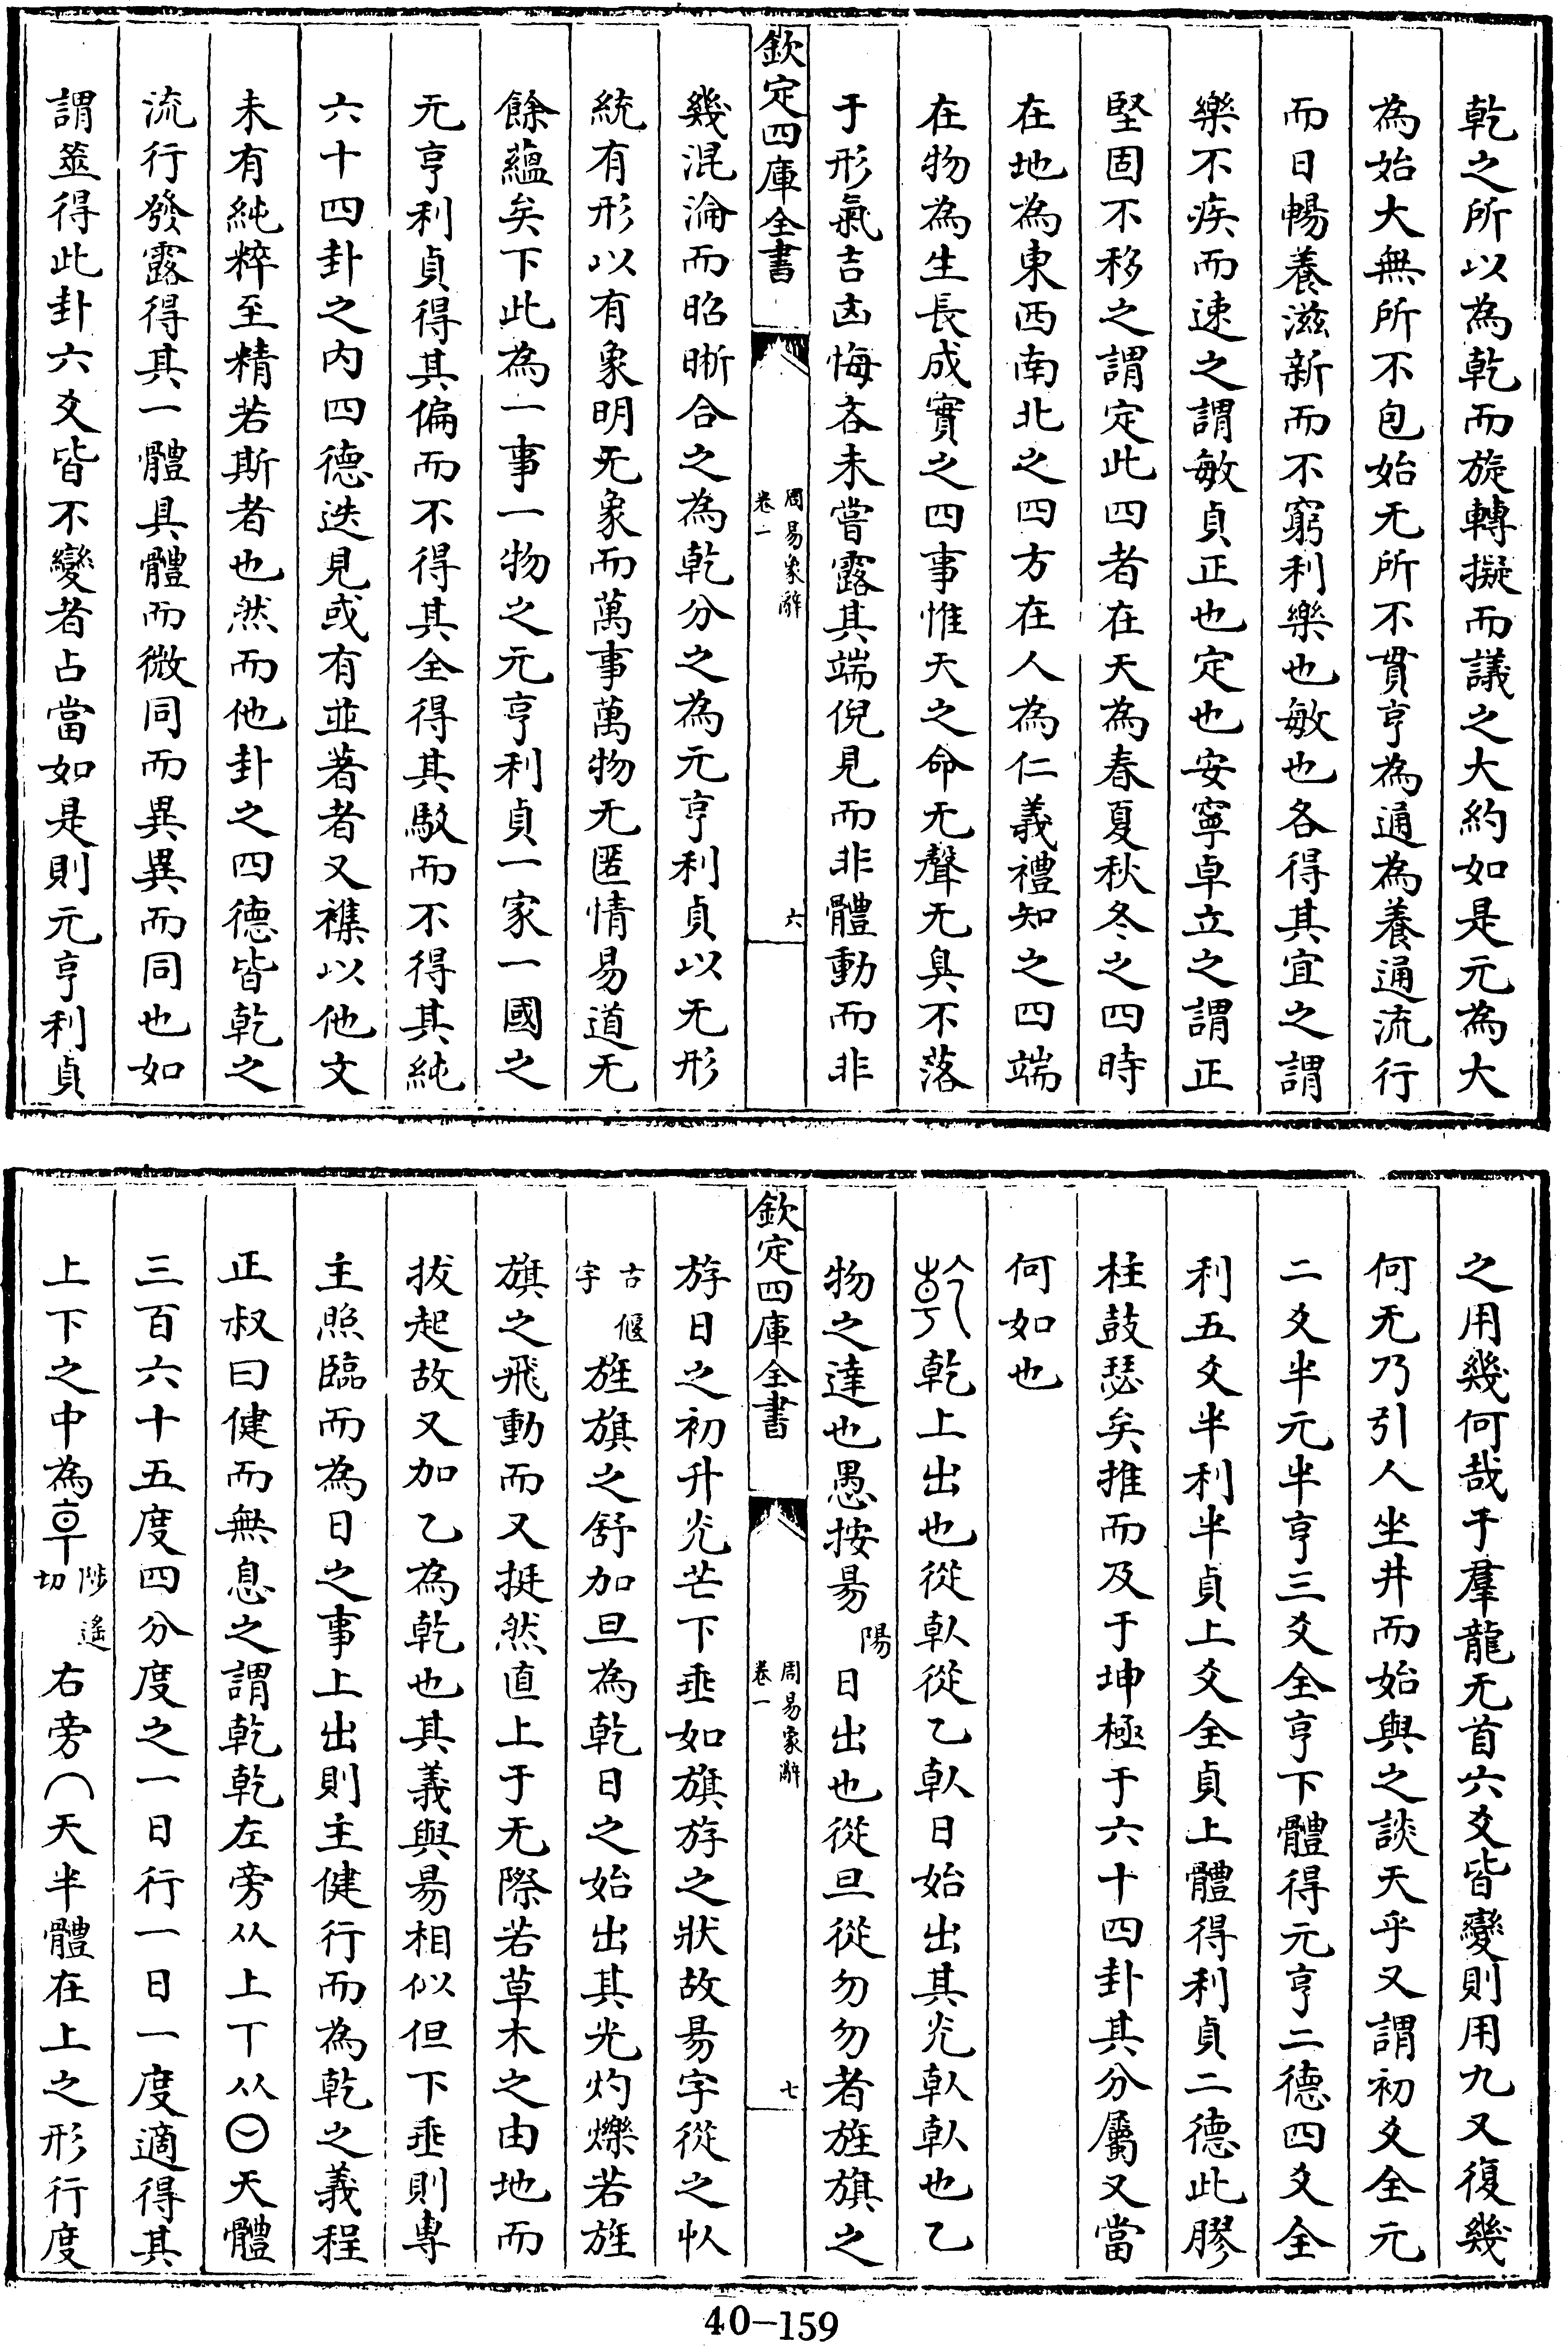 乾之所以為乾而旋轉擬而議之大約如是元為大
為始大無所不包始无所不貫亨為通為養通流行
而日暢養滋新而不窮利樂也敏也各得其宜之謂
樂不疾而速之謂敏貞正也定也安寧卓立之謂正
堅固不移之謂定此四者在天為春夏秋冬之四時
在地為東西南北之四方在人為仁義禮知之四端
在物為生長成實之四事惟天之命无聲无臭不落
于形氣吉凶悔吝未嘗露其端倪見而非體動而非
欽定四庫全書
周易象辭
卷一
六
幾混淪而昭晣合之為乾分之為元亨利貞以无形
統有形以有象明无象而萬事萬物无匿情易道无
餘蘊矣下此為一事一物之元亨利貞一家一國之
元亨利貞得其偏而不得其全得其駁而不得其純
六十四卦之内四德迭見或有並著者又襍以他文
未有純粹至精若斯者也然而他卦之四德皆乾之
流行發露得其一體具體而微同而異異而同也如
謂筮得此卦六爻皆不變者占當如是則元亨利貞
之用幾何哉于羣龍无首六爻皆變則用九又復幾
何无乃引人坐井而始與之談天乎又謂初爻全元
二爻半元半亨三爻全亨下體得元亨二德四爻全
利五爻半利半貞上爻全貞上體得利貞二德此膠
柱鼓瑟矣推而及于坤極于六十四卦其分屬又當
何如也
乾上出也從倝從乙倝日始出其光倝倝也乙
物之達也愚按昜陽日出也從旦從勿勿者旌旗之
欽定四庫全書
周易象辭
卷一
七
斿日之初升光芒下垂如旗斿之狀故昜字從之㫃
古偃字旌旗之舒加旦為乾日之始出其光灼爍若旌
旗之飛動而又挺然直上于无際若草木之由地而
拔起故又加乙為乾也其義與昜相似但下垂則專
主照臨而為日之事上出則主健行而為乾之義程
正叔曰健而無息之謂乾乾左旁从上丅从天體
三百六十五度四分度之一日行一日一度適得其
上下之中為陟遙切右旁天半體在上之形行度
40-159